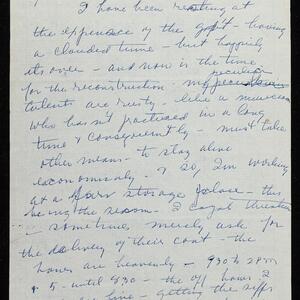 I have been resting at
the expense of the govt - having
a clouded time - but happily
its over - and now is the time
for the reconstruction my peculiar
talents are rusty - like a musician
who hasn't practiced in a long
time & consequently - must take
other means - to stay alive
economically - & so, I'm working
at a storage place - this
being the season - I
sometimes merely ask for
the delivery of their coat - the
hours are heavenly - 930 to 2 PM
& 5 - until 830 - the off hours I
- getting the